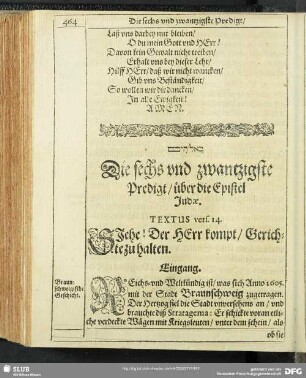 464
Die sechs vnd zwantzigste Predigt/
Laß vns darbey nur bleiben/
O du mein Gott vnd HErr!
Davon kein Gewalt nicht treiben/
Erhalt vns bey dieser Lehr/
Hilff HErr/ daß wir nicht wancken/
Gib vns Beständigkeit/
So wollen wir dir dancken/
In alle Ewigkeit!
AMEN.
Die sechs vnd zwantzigste
Predigt/ über die Epistel
Judæ.
TEXTUS vers. 14.
SIehe! Der HErr kompt/ Gerich-
te zu halten.
Eingang.
Braun-
schweigische
Geschicht.
REichs-vnd Weltkündig ist/ was sich Anno 1605.
mit der Stadt Braunschweig zugetragen.
Der Hertzog fiel die Stadt vnversehens an/ vnd
brauchte diß Stratagema: Er schickte voran etli-
che verdeckte Wägen mit Kriegsleuten/ unter dem schein/ als
ob sie
SLUB
Wir führen Wissen.